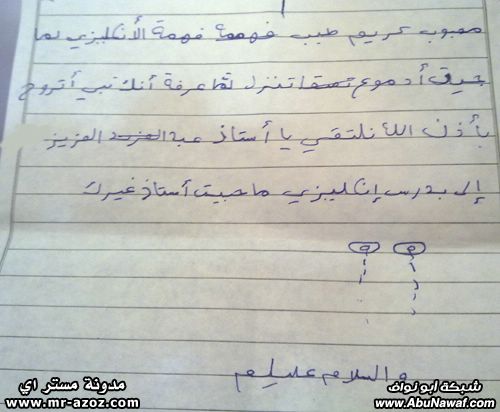 محبوب كريم طيب فهمة الأنكليزي لما
أدموع تنزل لما عرفة أنك تبي أتروح
بأذن اللة نلتقي يا أستاذ عبد العزيز العزيز
إلى يدرس إنكليزي ما حبيت أستاذ غيرك
ه ه
والسلام عليكم
مدونة مستر اي
www.mr-azoz.com
شبكة أبو نواف
www.AbuNawaf.com